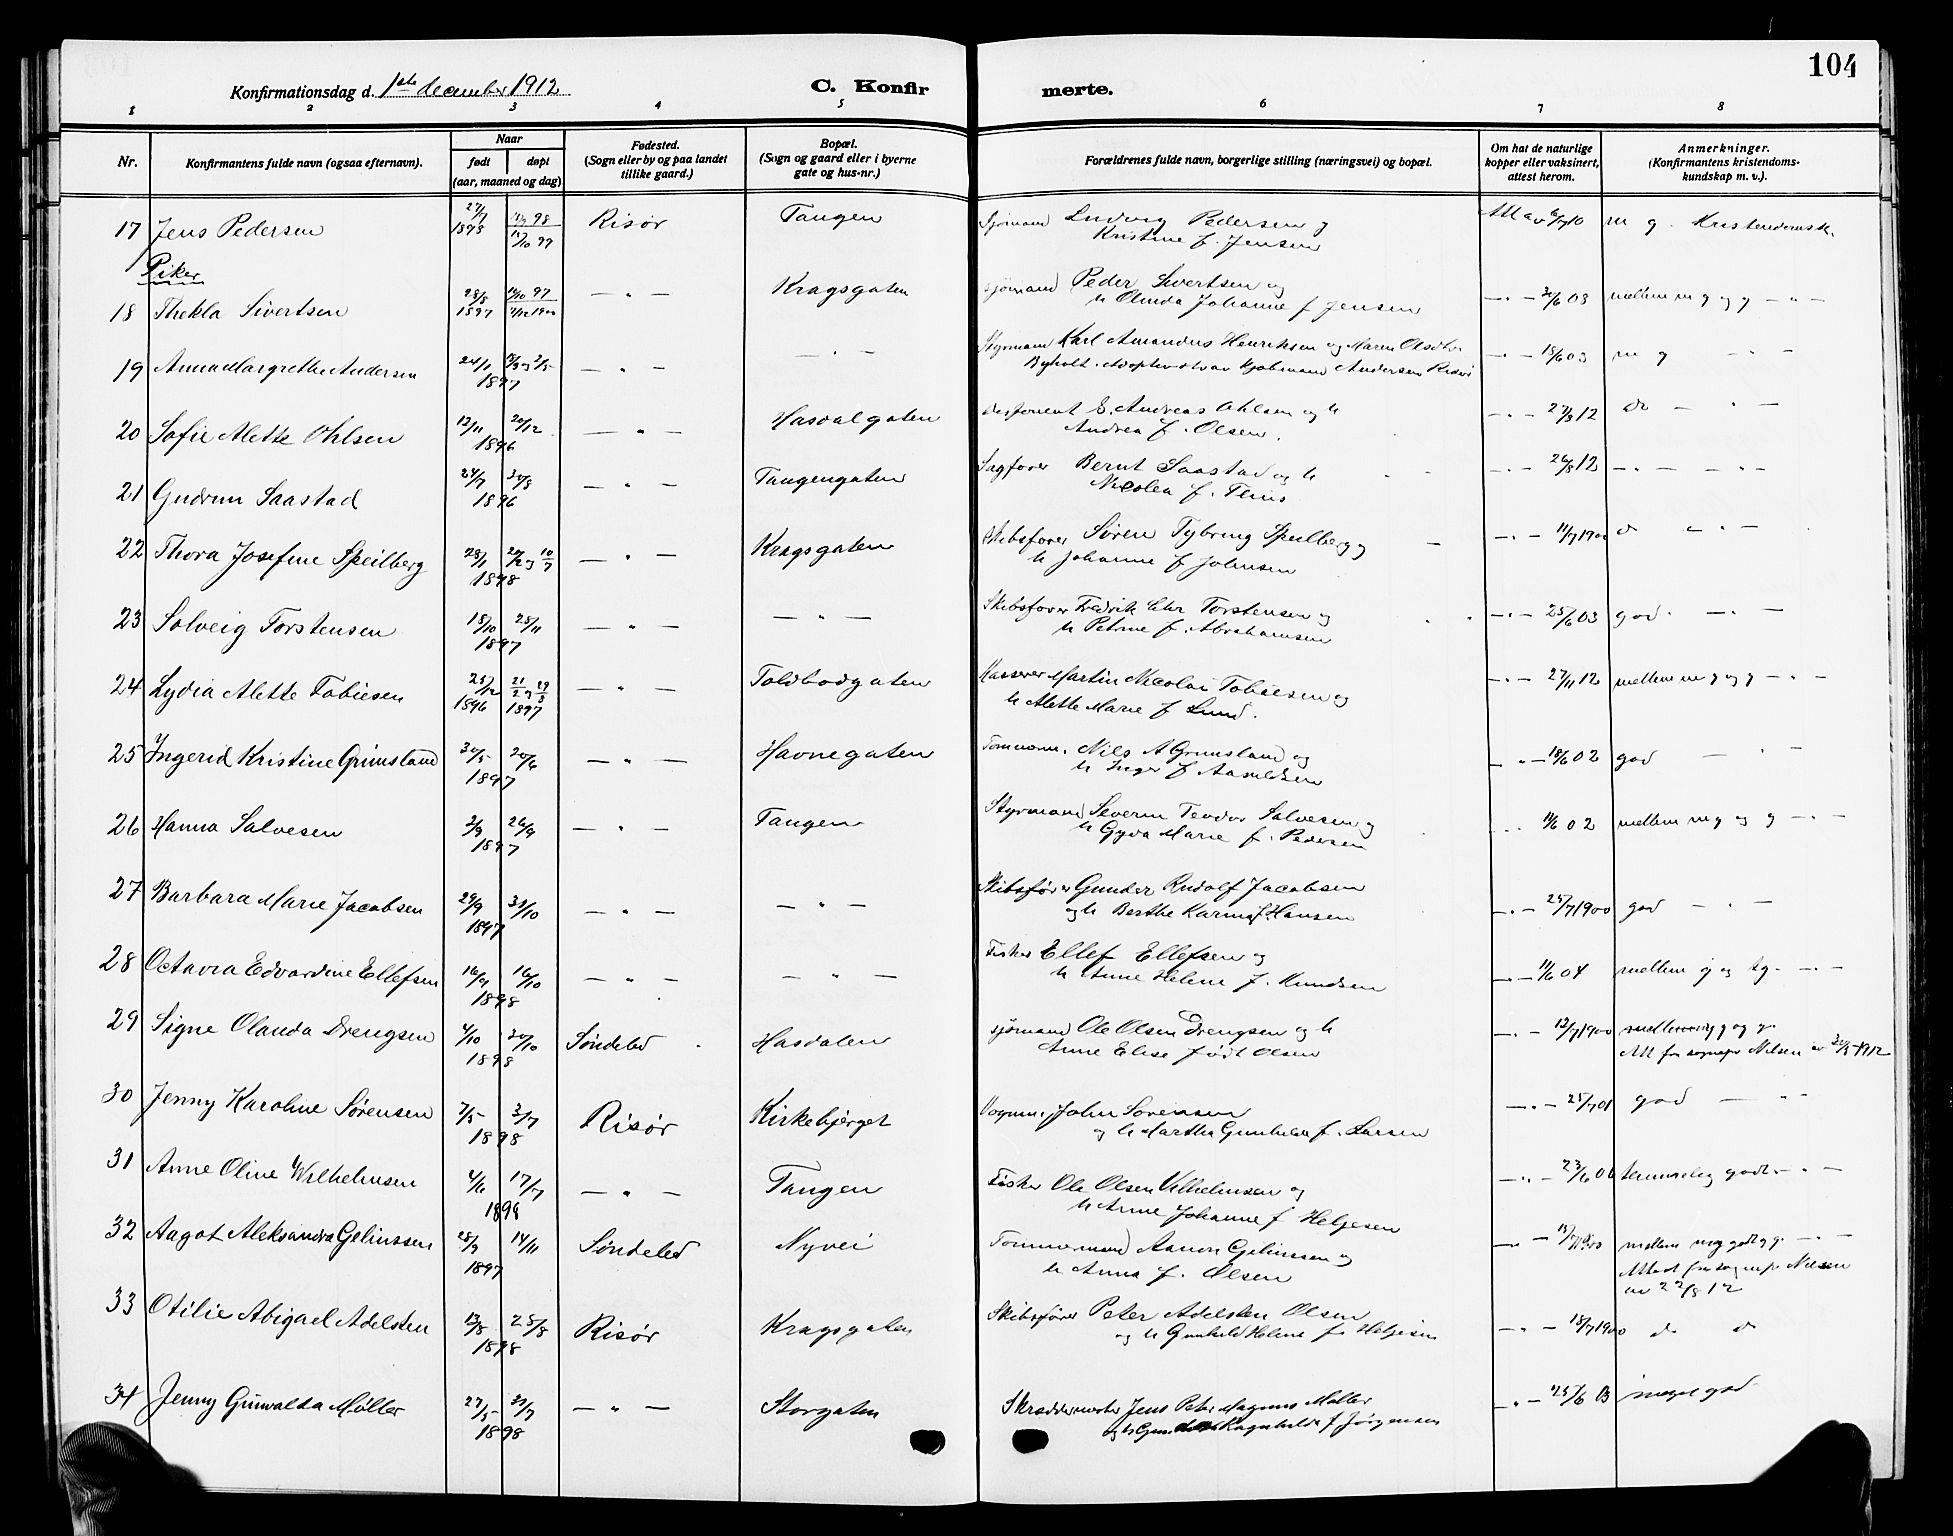 104
Konfirmationsdag d. 1ste december 1912 C. Konfirmerte.
1 2 3 4 5 6 7 8
Nr. Konfirmantens fulde navn (ogsaa efternavn). Naar født døpt (aar, maaned og dag) Fødested. (Sogn eller by og paa landet tillike gaard.) Bopæl. (Sogn og gaard eller i byerne gate og hus-nr.) Forældrenes fulde navn, borgerlige stilling (næringsvei) og bopæl. Om hat de naturlige kopper eller vaksinert, attest herom. Anmerkninger. (Konfirmantens kristendoms-kundskap m. v.).
17 Jens Pedersen 27/7 1898 Risør Tangen Sjømand Ludvig Pedersen og
Kristine f. Jensen m g. Kristendomsk.
Piker
18 Thekla Sivertsen 28/8 1897 — " — Kragsgaten sjømand Peder Sivertsen og
h Olinda Johanne f Jensen — " — 30/6 03 mellem mg og g — " —
19 Anna Margrethe Andersen 24/1 1897 — " — — " — Styrmand Karl Amandus Henriksen og Maren Olsdtr
Byholt. Andersen Risør — " — 18/6 03 m g — " —
20 Sofie Alette Ohlsen 12/11 20/12 1896 — " — Hasdalgaten Disponent E. Andreas Ohlsen og h
Andrea f. Olsen. — " — 27/9 12 do — " —
21 Gudrun Saastad 24/7 30/8 1896 — " — Tangengaten Sagfører Bernt Saastad og h
Nicolea f. — " — 26/8 12 — " — — " —
22 Thora Josefine Speilberg 28/1 27/2 og 10/7 1898 — " — Kragsgaten Skibsfører Søren Tybring Speilberg og
h Johanne f Johnsen — " — 11/7 1900 d — " —
23 Solveig Torstensen 18/10 28/11 1897 — " — — " — Skibsfører Fredrik Chr Torstensen og
h Petrine f. Abrahamsen — " — 25/6 03 god. — " —
24 Lydia Alette Tobiesen 25/12 1896 21/2 og 29/3 1897 — " — Toldbodgaten Kasserer Martin Nicolai Tobiesen og
h Alette Marie f Lund. — " — 27/11 12 mellem mg og g — " —
25 Ingerid Kristine Grimsland 30/5 20/6 1897 — " — Havnegaten Tømmerm. Nils A Grimsland og
h Inger f — " — 18/6 02 god — " —
26 Hanna Salvesen 2/9 26/9 1897 — " — Tangen Styrmand Severin Teodor Salvesen og
h Gyda Marie f. Pedersen " 11/6 02 mellem mg og g — " —
27 Barbara Marie Jacobsen 29/9 31/10 1897 — " — — " — Skibsfører Gunder Rudolf Jacobsen
og h Berthe Karine f. Hansen — " — 25/7 1900 god — " —
28 Octavia Edvardine Ellefsen 16/9 16/10 1898 — " — — " — Fisker Ellef Ellefsen og
h Anne Helene f. Knudsen — " — 11/6 04 mellem g og tg. — " —
29 Signe Olanda Drengsen 4/10 30/10 1898 Søndeled Hasdalen sjømand Ole Olsen Drengsen og h
Anne Elise født Olsen — " — 12/7 1900 mellem mg og g.
Att fra sognepr Nilsen av 1912
30 Jenny Karoline Sørensen 7/5 3/7 1898 Risør Kirkebjerget Vognm. John Sørensen
og h Marthe Gunhilda f. Larsen — " — 25/7 01 god — " —
31 Anne Oline Wilhelmsen 4/6 17/7 1898 — " — Tangen Fisker Ole Olsen Vilhelmsen og
h Anne Johanne f Helgesen — " — 23/6 06 temmelig godt. — " —
32 Aagot Aleksandra Gelinssen 28/9 14/11 1897 Søndeled Nyvei Tømmermand Aanon Gelinssen og
h Anna f. Olsen — " — 13/7 1900 mellem meg godt og g. — " —
Attest fra sognepr Nilsen
av 22/8 12
33 Otilie Abigael Adelsten 13/8 28/8 1898 Risør Kragsgaten Skibsfører Peter Adelsten Olsen
og h Gunhild Helene f. Helgesen — " — 18/7 1900 do do
34 Jenny Gunvalda Møller 27/5 31/7 1898 — " — Storgaten Skræddermester Jens Peter Magnus Møller
og h Ragnhilda f Jørgensen — " — 25/6 03 meget god